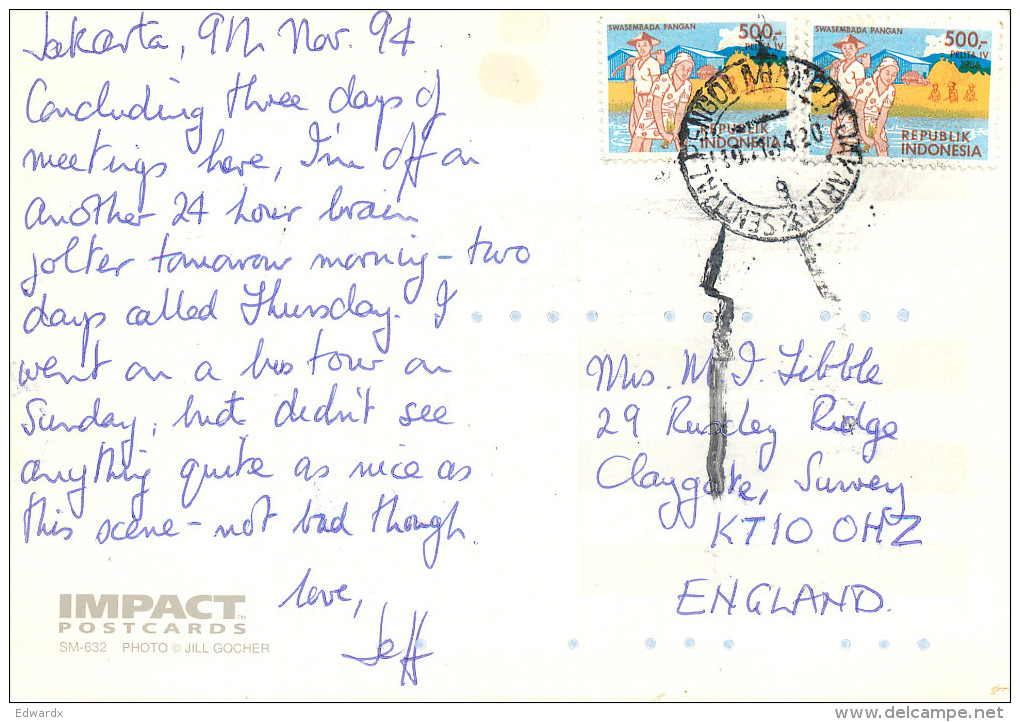 Jakarta, 9th Nov. 94
Concluding three days of
meetings here, I'm off on
another 24 hour brain
jolter tomorrow morning – two
days called Thursday. I
went on a bus tour on
Sunday, but didn't see
anything quite as nice as
this scene – not bad though.
love,
Jeff
IMPACT™
POSTCARDS
SM-632 PHOTO © JILL GOCHER
SWASEMBADA PANGAN
500,-
PELITA IV
REPUBLIK
INDONESIA
SWASEMBADA PANGAN
500,-
PELITA IV
REPUBLIK
INDONESIA
SENTRAL
Mrs. M. I. Tibble
29 Ruxley Ridge
Claygate, Surrey
KT10 0HZ
ENGLAND.
Edwardx
www.delcampe.net